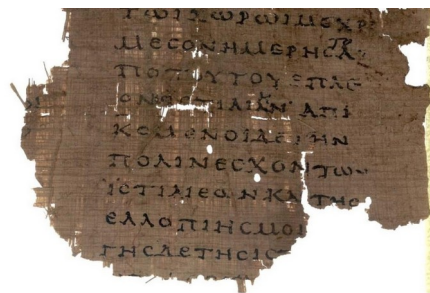 ΤΩΙΧΩΡΩΙΜΕΧΡ
ΜΕϹΟΝΗΜΕΡΗϹΑ
ΠΟΤΟΥΤΟΥΕΠΛΕ
ΑΠΙ
ΚΟΜΕΝΟΙΔΕΤΗΝ
ΠΟΛΙΝΕϹΧΟΝΤΩΝ
ΙϹΤΙΑΙΕΩΝΚΑΙΤΗϹ
ΕΛΛΟΠΙΗϹΜΟΙ
ΓΗϹΔΕΤΗϹΙϹ